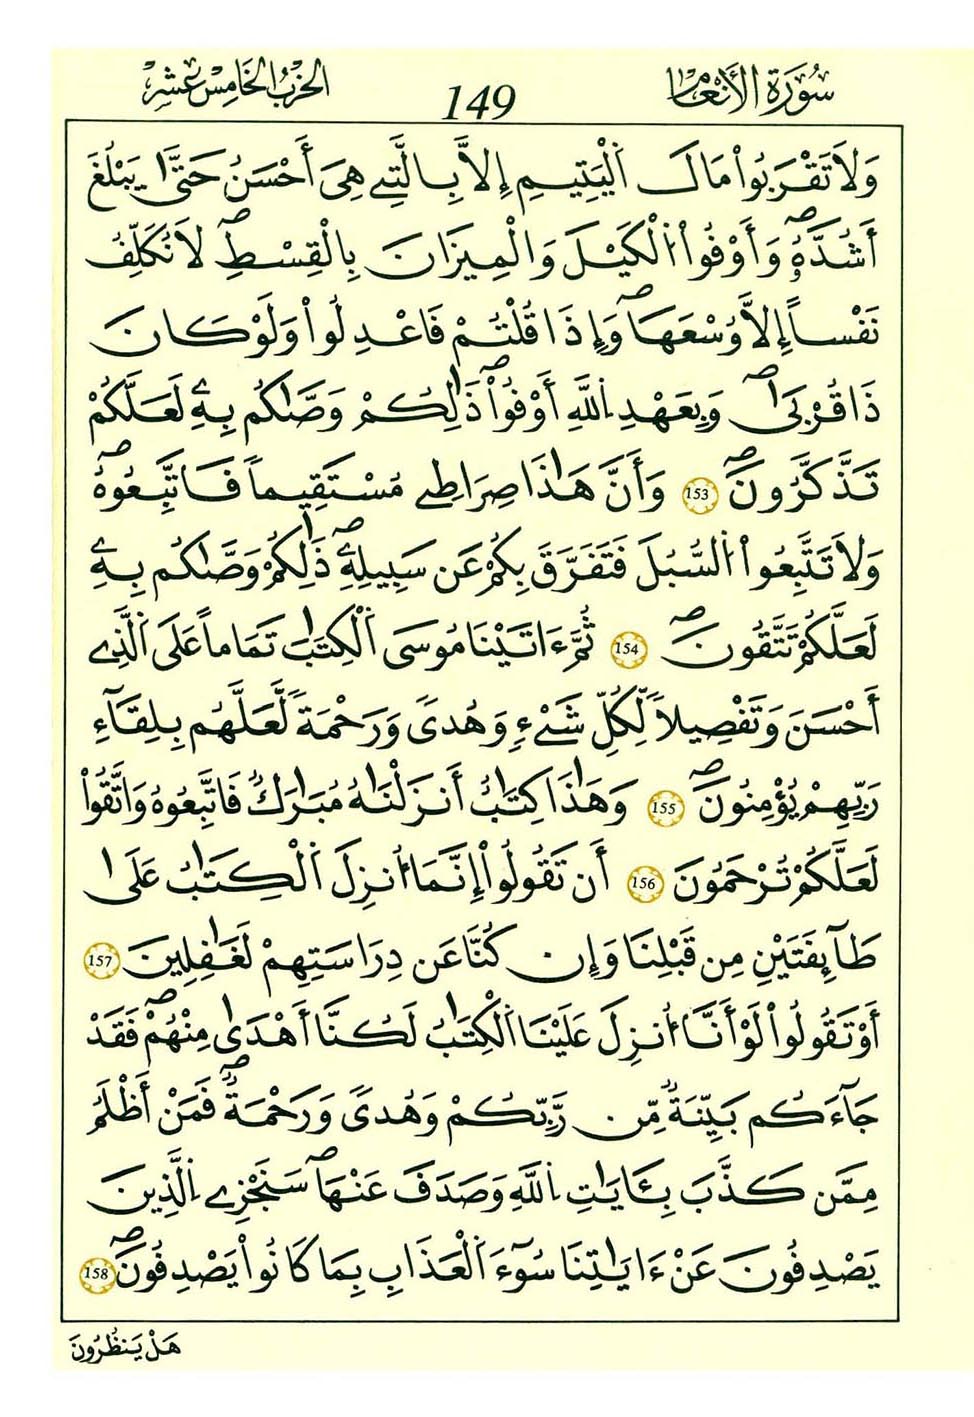 سُورَةُ الأَنْعَامِ 149 الحِزْبُ الخَامِسَ عَشَرَ
وَلَا تَقْرَبُواْ مَالَ اَلْيَتِيمِ إِلَّا بِالَّتِے هِىَ أَحْسَنُ حَتَّىٰ يَبْلُغَ
أَشُدَّهُۥۖ وَأَوْفُواْ اُلْكَيْلَ وَالْمِيزَانَ بِالْقِسْطِۖ لَا نُكَلِّفُ
نَفْساً إِلَّا وُسْعَهَاۖ وَإِذَا قُلْتُمْ فَاعْدِلُواْ وَلَوْ كَانَ
ذَا قُرْبَىٰۖ وَبِعَهْدِ اِللَّهِ أَوْفُواْۖ ذَٰلِكُمْ وَصَّىٰكُم بِهِۦ لَعَلَّكُمْ
تَذَّكَّرُونَۖ 153 وَأَنَّ هَٰذَا صِرَاطِے مُسْتَقِيماً فَاتَّبِعُوهُۖ
وَلَا تَتَّبِعُواْ اُلسُّبُلَ فَتَفَرَّقَ بِكُمْ عَن سَبِيلِهِۦۖ ذَٰلِكُمْ وَصَّىٰكُم بِهِۦ
لَعَلَّكُمْ تَتَّقُونَۖ 154 ثُمَّ ءَاتَيْنَا مُوسَى اَلْكِتَٰبَ تَمَاماً عَلَى اَلَّذِے
أَحْسَنَ وَتَفْصِيلاً لِّكُلِّ شَےْءٍ وَهُدىً وَرَحْمَةً لَّعَلَّهُم بِلِقَآءِ
رَبِّهِمْ يُؤْمِنُونَۖ 155 وَهَٰذَا كِتَٰبٌ أَنزَلْنَٰهُ مُبَٰرَكٌ فَاتَّبِعُوهُ وَاتَّقُواْ
لَعَلَّكُمْ تُرْحَمُونَ 156 أَن تَقُولُواْ إِنَّمَا أُنزِلَ اَلْكِتَٰبُ عَلَىٰ
طَآئِفَتَيْنِ مِن قَبْلِنَا وَإِن كُنَّا عَن دِرَاسَتِهِمْ لَغَٰفِلِينَ 157
أَوْ تَقُولُواْ لَوْ أَنَّا أُنزِلَ عَلَيْنَا اَلْكِتَٰبُ لَكُنَّا أَهْدَىٰ مِنْهُمْۖ فَقَدْ
جَآءَكُم بَيِّنَةٌ مِّن رَّبِّكُمْ وَهُدىً وَرَحْمَةٌۖ فَمَنْ أَظْلَمُ
مِمَّن كَذَّبَ بِـَٔايَٰتِ اِللَّهِ وَصَدَفَ عَنْهَاۖ سَنَجْزِے اِلَّذِينَ
يَصْدِفُونَ عَنْ ءَايَٰتِنَا سُوٓءَ اَلْعَذَابِ بِمَا كَانُواْ يَصْدِفُونَۖ 158
هَلْ يَنظُرُونَ